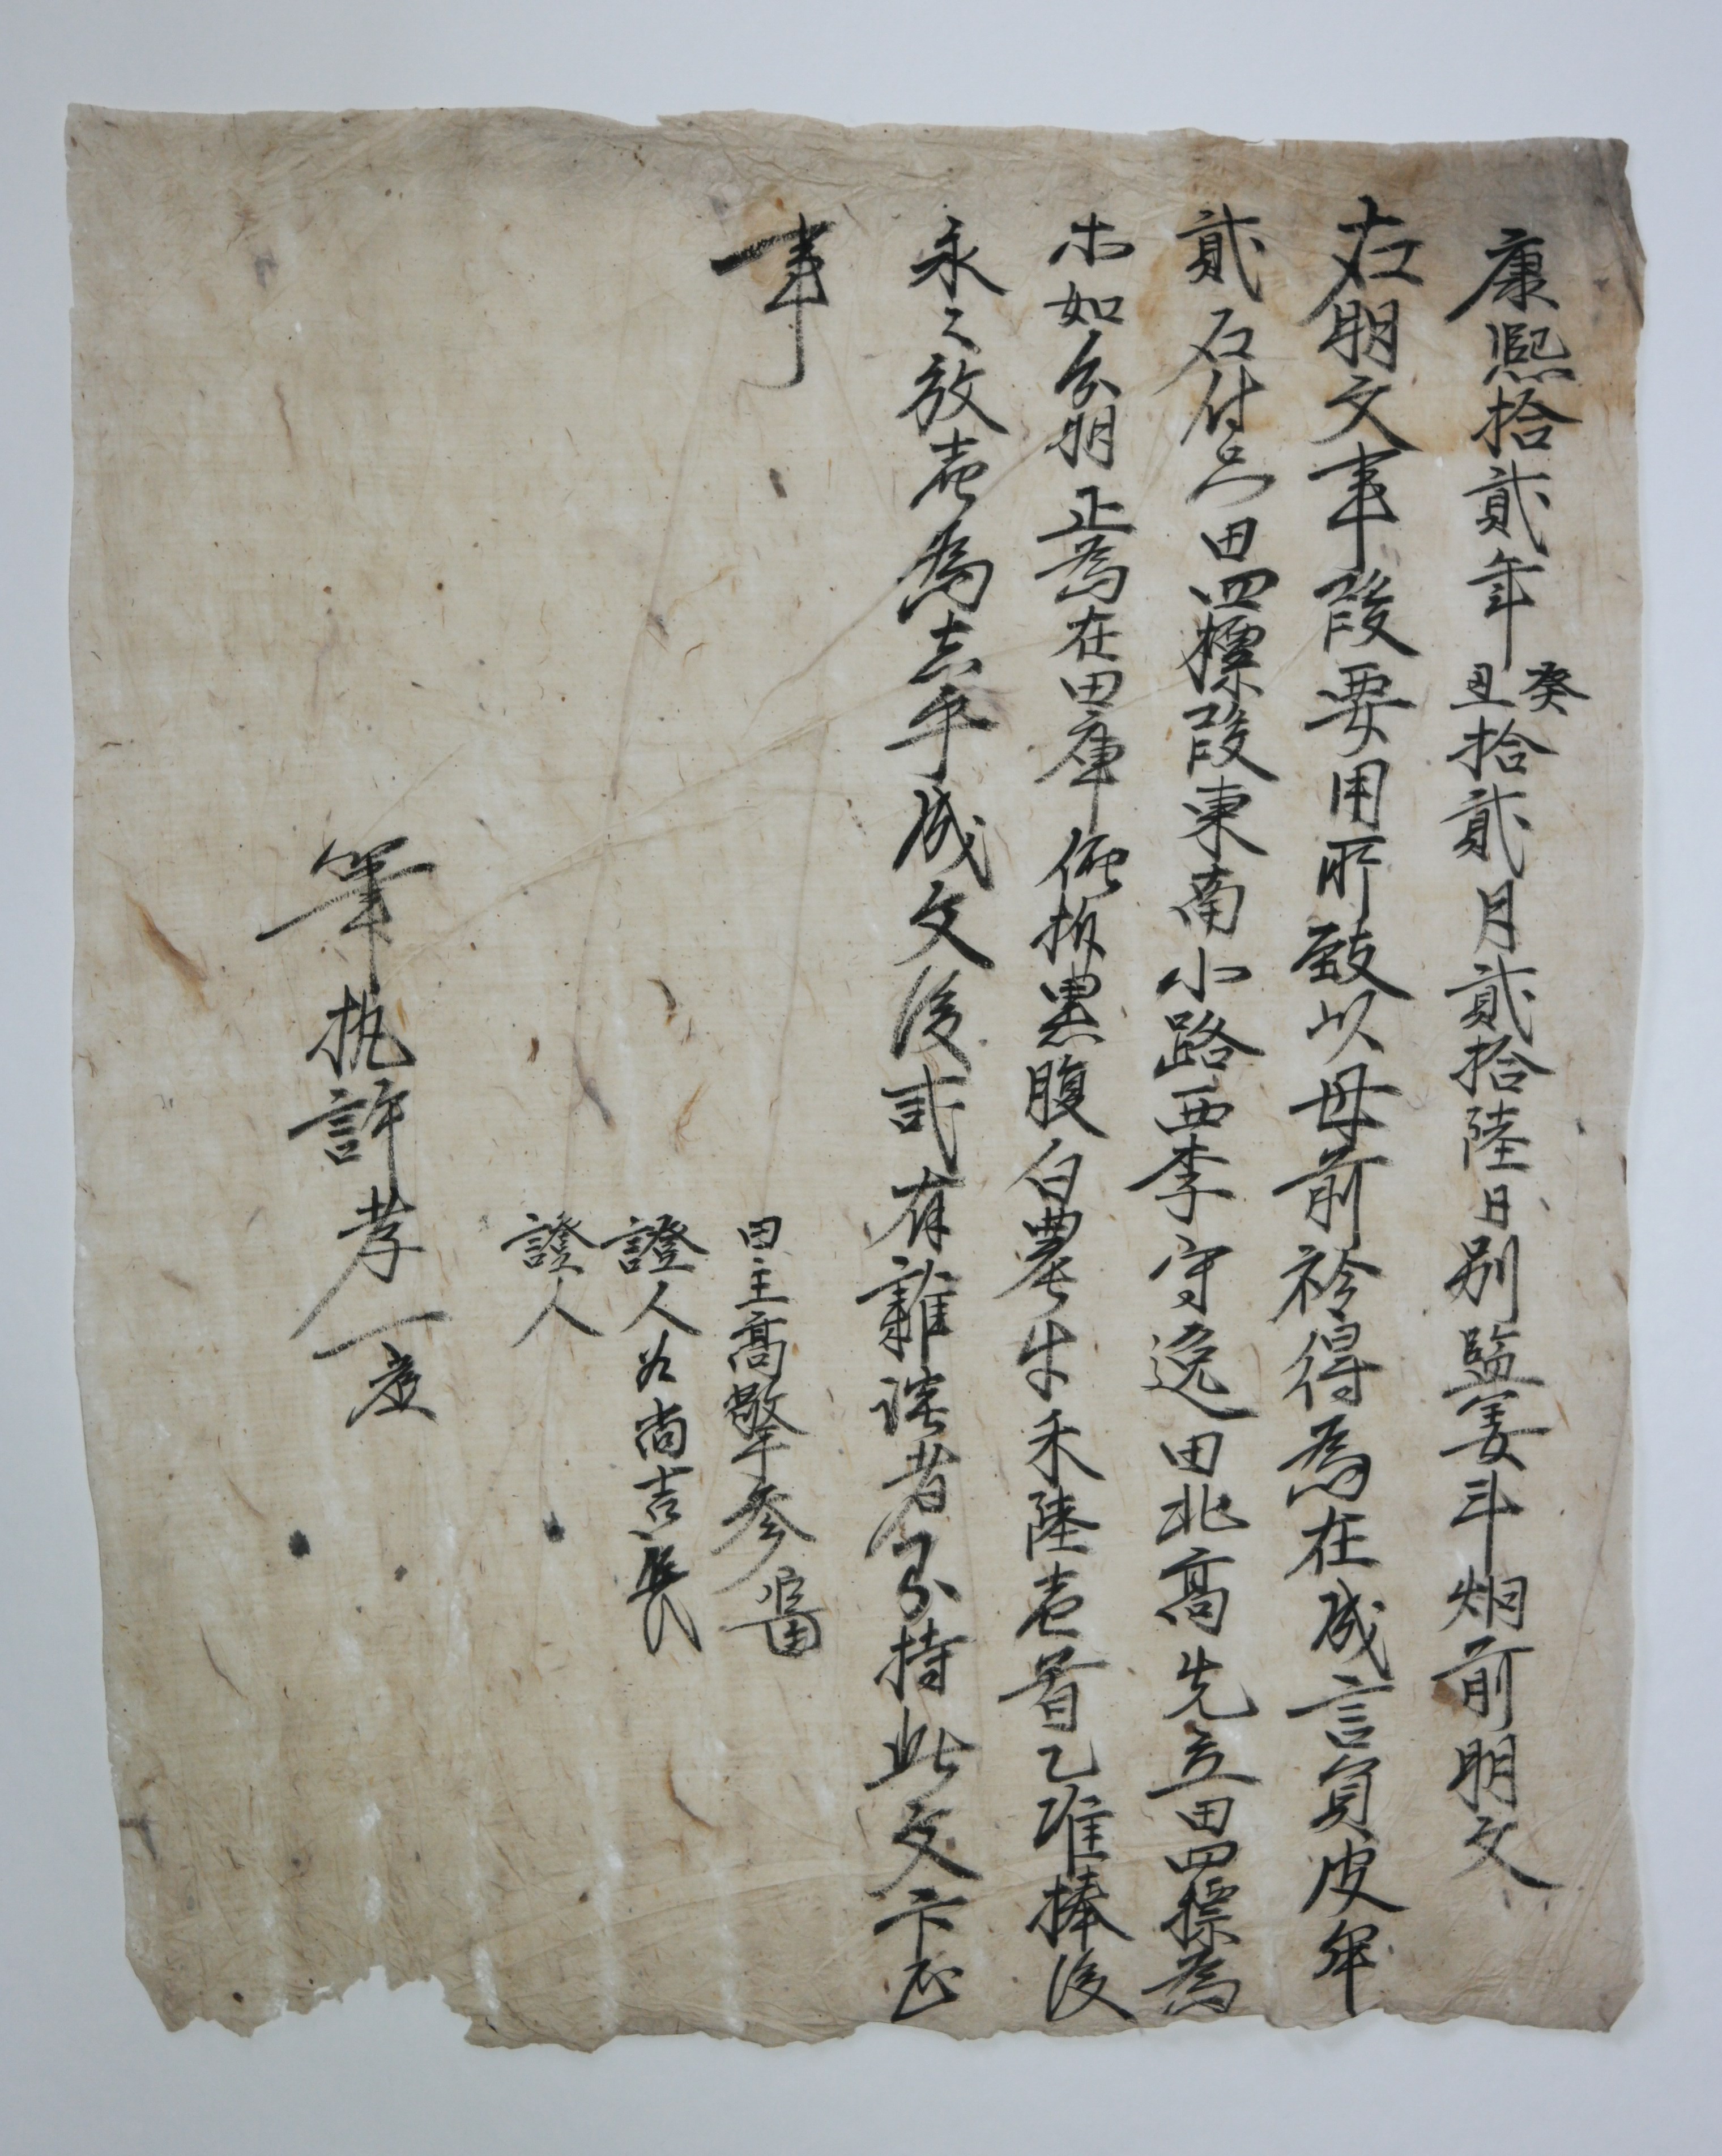 康熙拾貳年癸丑拾貳月貳拾陸日別監姜斗炯前明文
右明文事段要用所致以母前衿得爲在成言員皮牟
貳石付只田四標段東南小路西李守逸田北高先立田四標爲
如分明正爲在田庫 折黑腹白農牛禾陸壱首乙准捧後
永永放賣爲去乎成文後 有雜談者 持此文卞正
事
田主高擎參
證人 尚吉長
證人
筆執許孝一